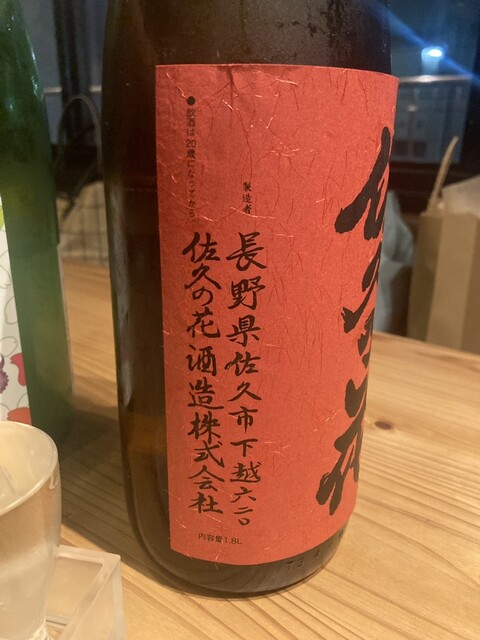 佐久の花
製造者
長野県佐久市下越六二〇
佐久の花酒造株式会社
●飲酒は20歳になってから。
内容量1.8L